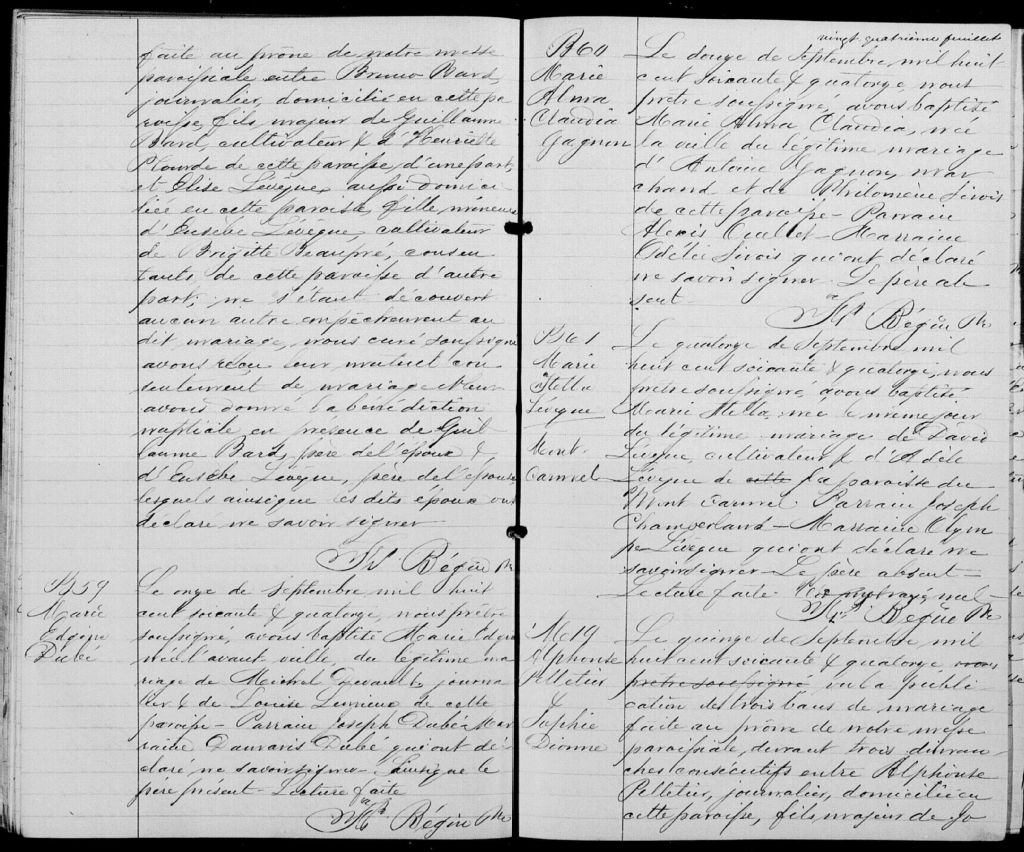 faite au prône de notre messe
paroissiale entre Bruno Bard,
journalier, domicilié en cette pa
roisse, fils majeur de Guillaume
Bard, cultivateur & d'Henriette
Plourde de cette paroisse, d'une part,
et Elise Lévêque, aussi domici
liée en cette paroisse, fille mineure
d'Eusèbe Lévêque, cultivateur
de Brigitte Beaupré, consen
tants, de cette paroisse d'autre
part, ne s'étant découvert
aucun autre empêchement au
dit mariage, nous curé soussigné
avons reçu leur mutuel con
sentement de mariage et leur
avons donné la bénédiction
nuptiale en présence de Guil
laume Bard, père de l'époux &
d'Eusèbe Lévêque, père de l'épouse
lesquels ainsi que les dits époux ont
déclaré ne savoir signer
Bégin Ptre
B59
Marie
Edgire
Dubé
Le onze de septembre mil huit
cent soixante & quatorze, nous prêtre
soussigné, avons baptisé Marie
née l'avant-veille, du légitime ma
riage de Michel journa
lier & de Louise de cette
paroisse - Parrain Joseph Dubé - Mar
raine Damaris Dubé qui ont dé
claré ne savoir signer - le
père présent - Lecture faite
Bégin Ptre
vingt-quatrième feuillet
B60
Marie
Alma
Claudia
Gagnon
Le douze de septembre, mil huit
cent soixante & quatorze nous
prêtre soussigné, avons baptisé
Marie Alma Claudia, née
la veille du légitime mariage
d'Antoine Gagnon, mar
chand et de Philomène Sirois
de cette paroisse - Parrain
Alexis Ouellet - Marraine
Odélie Sirois qui ont déclaré
ne savoir signer. Le père ab
sent
Bégin Ptre
B61
Marie
Stella
Lévêque
Mont-
Carmel
Le quatorze de septembre mil
huit cent soixante & quatorze, nous
prêtre soussigné avons baptisé
Marie Stella, née le même jour
du légitime mariage de David
Lévêque, cultivateur & d'Adèle
Lévêque de cette la paroisse du
Mont Carmel Parrain Joseph
Chamberland - Marraine Olym
pe Lévêque qui ont déclaré ne
savoir signer - Le père absent -
Lecture faite nul -
Bégin Ptre
M19
Alphonse
Pelletier
&
Sophie
Dionne
Le quinze de septembre mil
huit cent soixante & quatorze nous
prêtre soussigné vu la publi
cation de trois bans de mariage
faite au prône de notre messe
paroissiale, durant trois diman
ches consécutifs entre Alphonse
Pelletier, journalier, domicilié en
cette paroisse, fils majeur de Jo